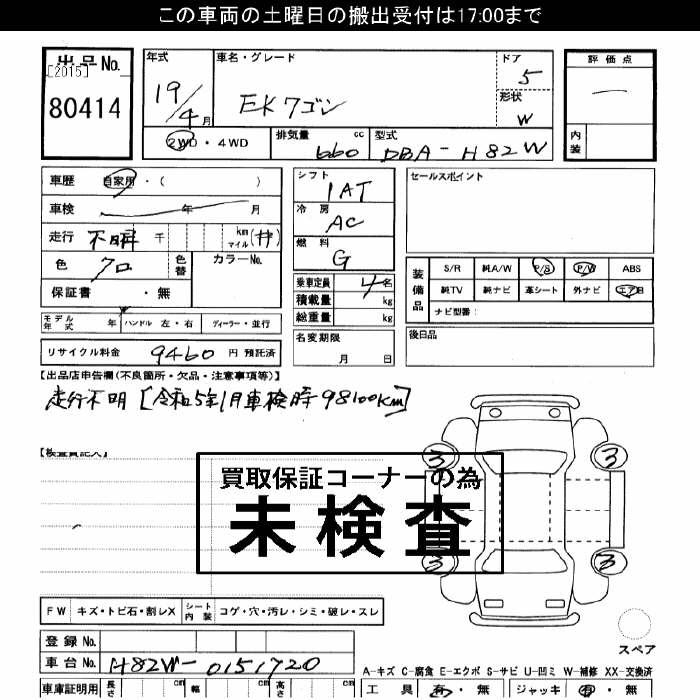 この車両の土曜日の搬出受付は17:00まで
出品No.
[2015]
80414
年式
19/4月
車名・グレード
EKワゴン
ドア
5
形状
W
評価点
内装
2WD・4WD
排気量 cc
660
型式
DBA-H82W
車歴 自家用・( )
車検 年 月
走行 不明 千 km マイル (#)
色 クロ 色替 カラーNo.
保証書 ・無
モデル年式 年 ハンドル 左・右 ディーラー・並行
リサイクル料金 9460 円 預託済
シフト
1AT
冷房
AC
燃料
G
乗車定員 4名
積載量 kg
総重量 kg
名変期限
月 日
セールスポイント
装備品
S/R 純A/W P/S P/W ABS
純TV 純ナビ 革シート 外ナビ エアB
ナビ型番:
後日品
【出品店申告欄(不良箇所・欠品・注意事項等)】
走行不明 [令和5年1月車検時 98100km]
【検査員記入】
買取保証コーナーの為
未検査
3 3
3 3
スペア
FW キズ・トビ石・割レX シート内装 コゲ・穴・汚レ・シミ・破レ・スレ
登録No.
車台No. H82W-0151720
A-キズ C-腐食 E-エクボ S-サビ U-凹ミ W-補修 XX-交換済
車庫証明用 長さ cm 幅 cm 高さ cm
工具 有・無 ジャッキ 有・無